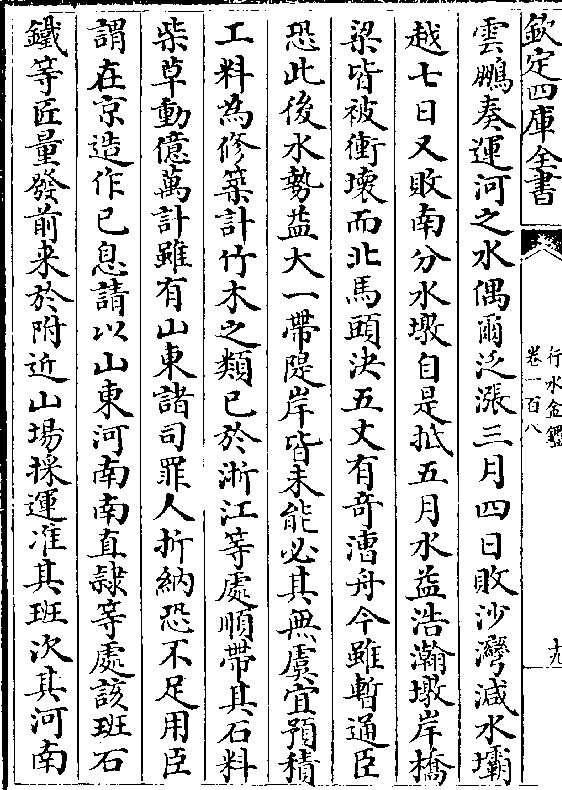 欽定四庫全書
行水金鑑
卷一百八
十九
雲鵬奏運河之水偶爾泛漲三月四日敗沙灣減水壩
越七日又敗南分水墩自是抵五月水益浩瀚墩岸橋
梁皆被衝壞而北馬頭決五丈有奇漕舟今雖暫通臣
恐此後水勢益大一帶隄岸皆未能必其無虞宜預積
工料為修築計竹木之類已於浙江等處順帶其石料
柴草動億萬計雖有山東諸司罪人折納恐不足用臣
謂在京造作已息請以山東河南南直隷等處該班石
鐵等匠量發前来於附近山場採運准其班次其河南